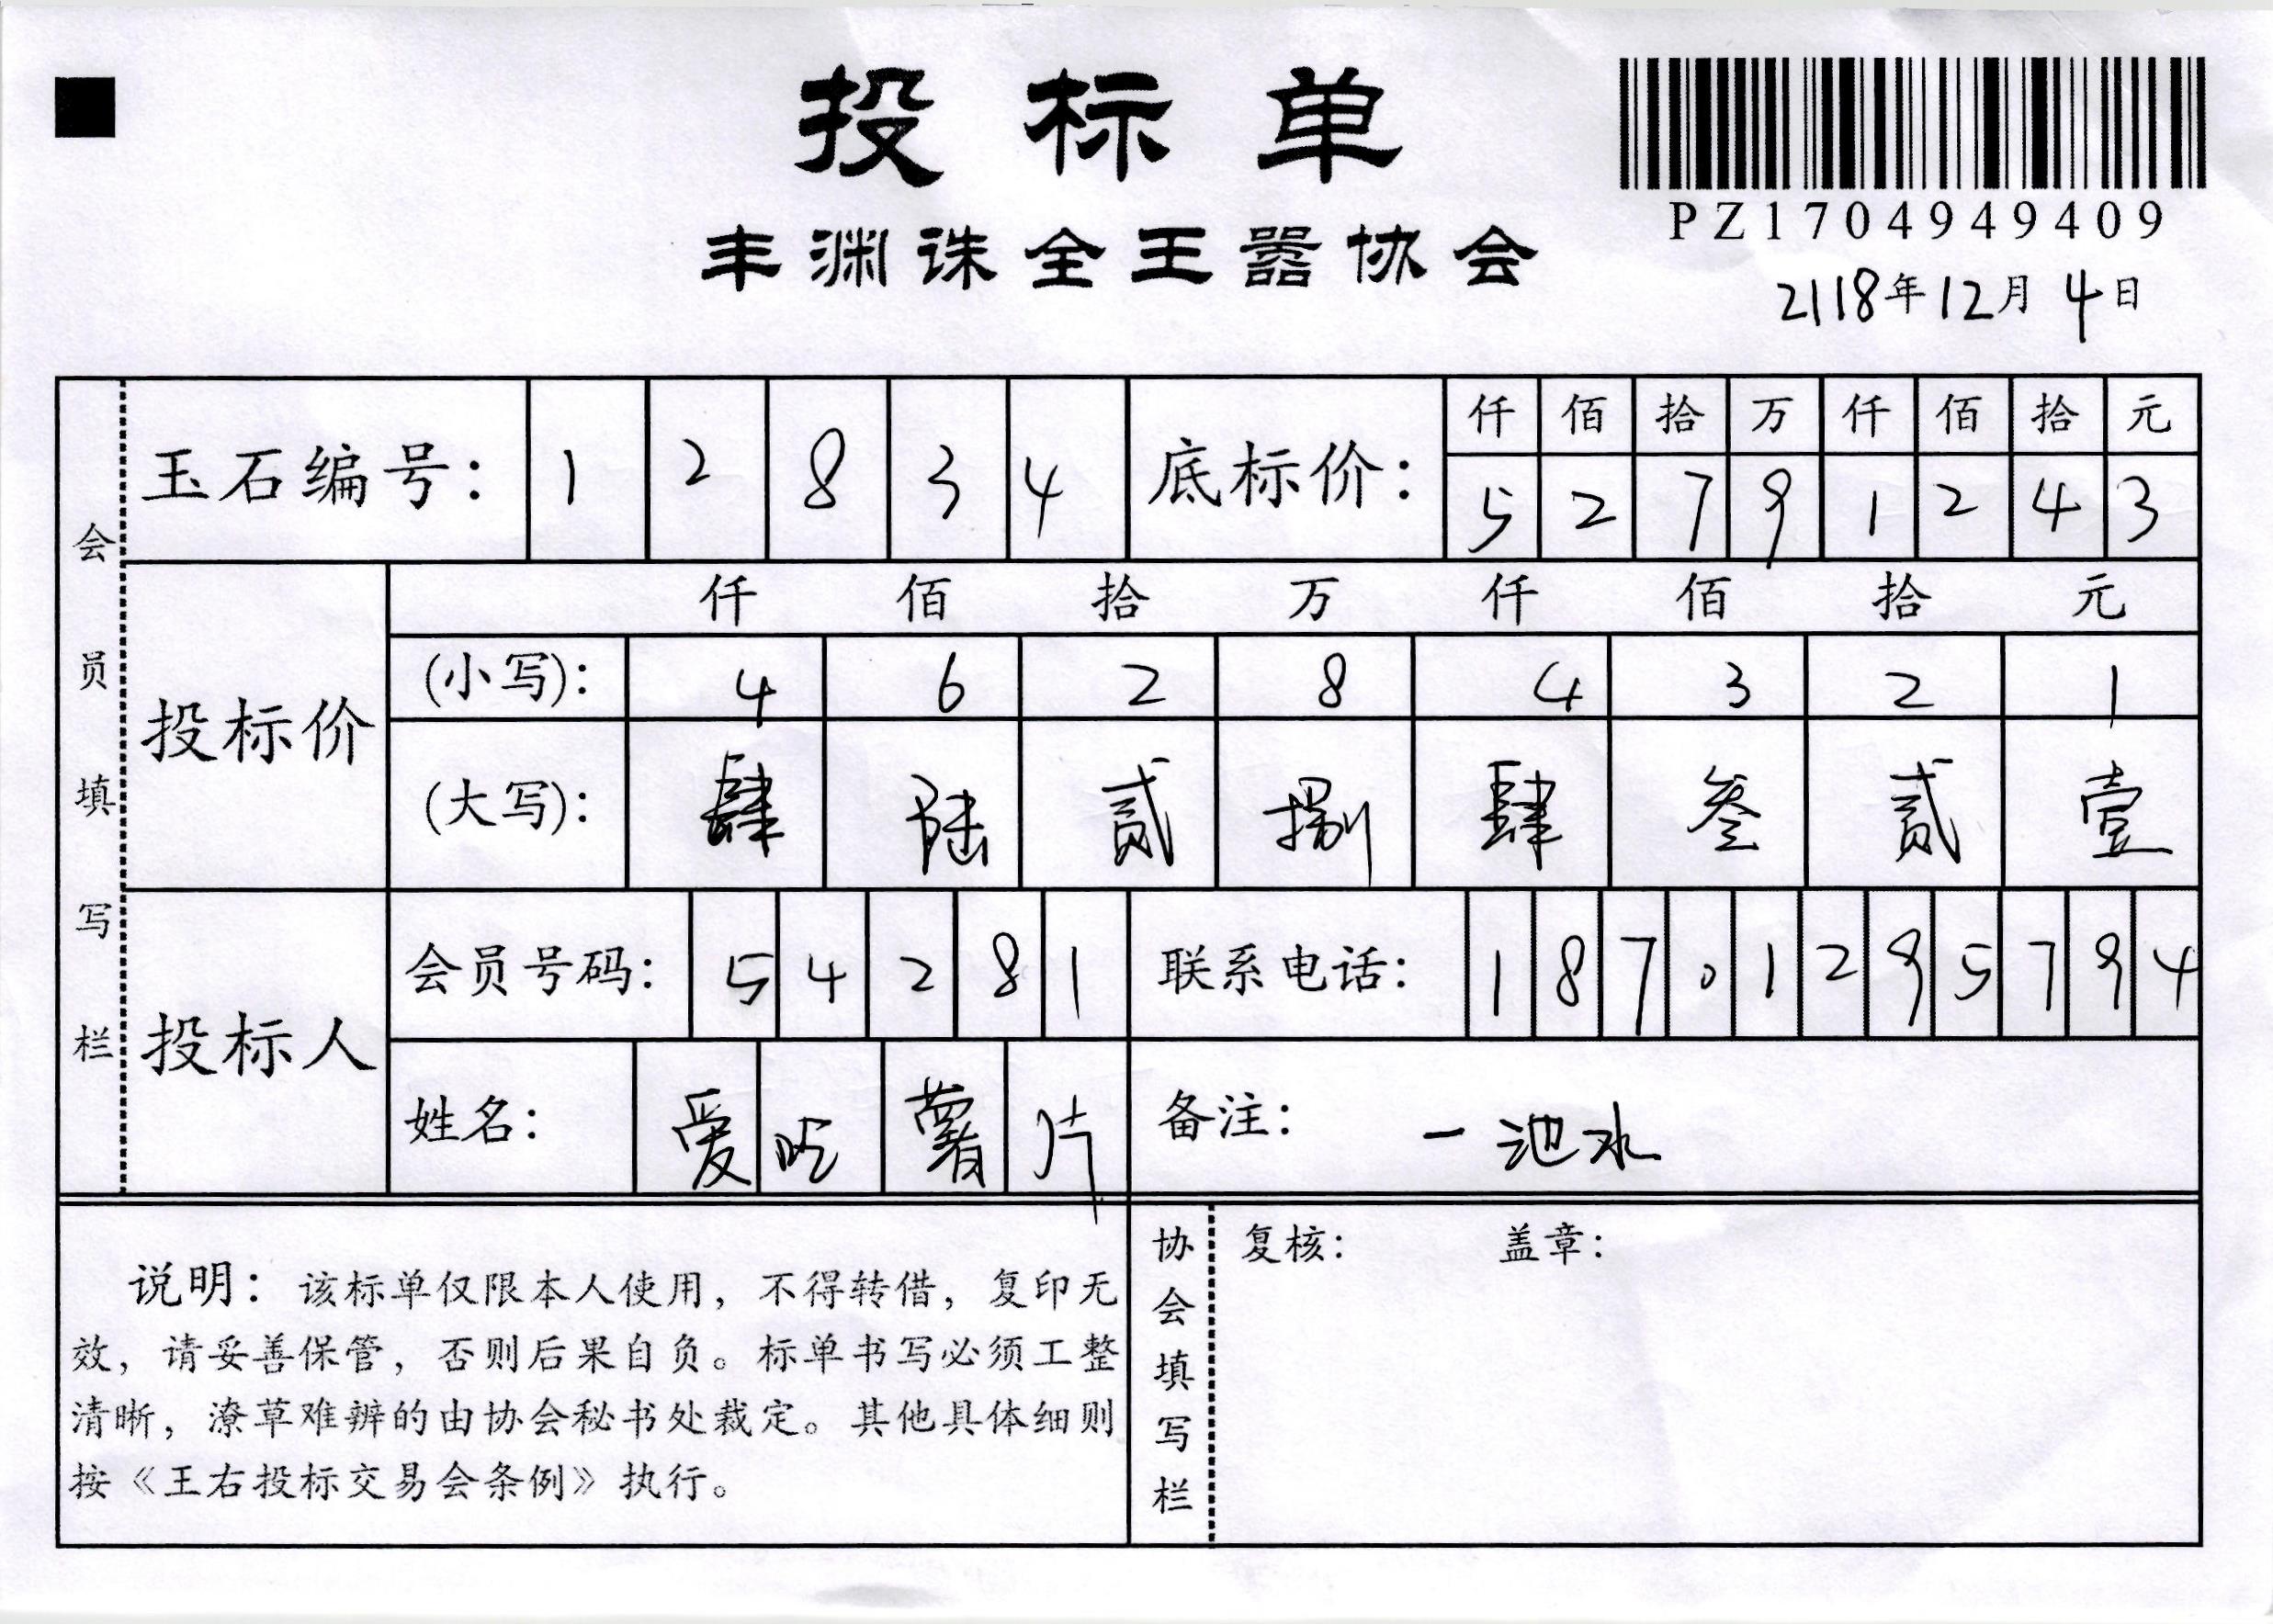 投标单
丰渊诛全王嚣协会
PZ1704949409
2118年12月4日
会员填写栏
玉石编号: 1 2 8 3 4
底标价: 仟 佰 拾 万 仟 佰 拾 元
5 2 7 9 1 2 4 3
投标价
仟 佰 拾 万 仟 佰 拾 元
(小写): 4 6 2 8 4 3 2 1
(大写): 肆 陆 贰 捌 肆 叁 贰 壹
投标人
会员号码: 5 4 2 8 1
联系电话: 1 8 7 0 1 2 9 5 7 9 4
姓名: 爱吃薯片
备注: 一池水
说明: 该标单仅限本人使用, 不得转借, 复印无
效, 请妥善保管, 否则后果自负。标单书写必须工整
清晰, 潦草难辨的由协会秘书处裁定。其他具体细则
按《王右投标交易会条例》执行。
协会填写栏
复核: 盖章: